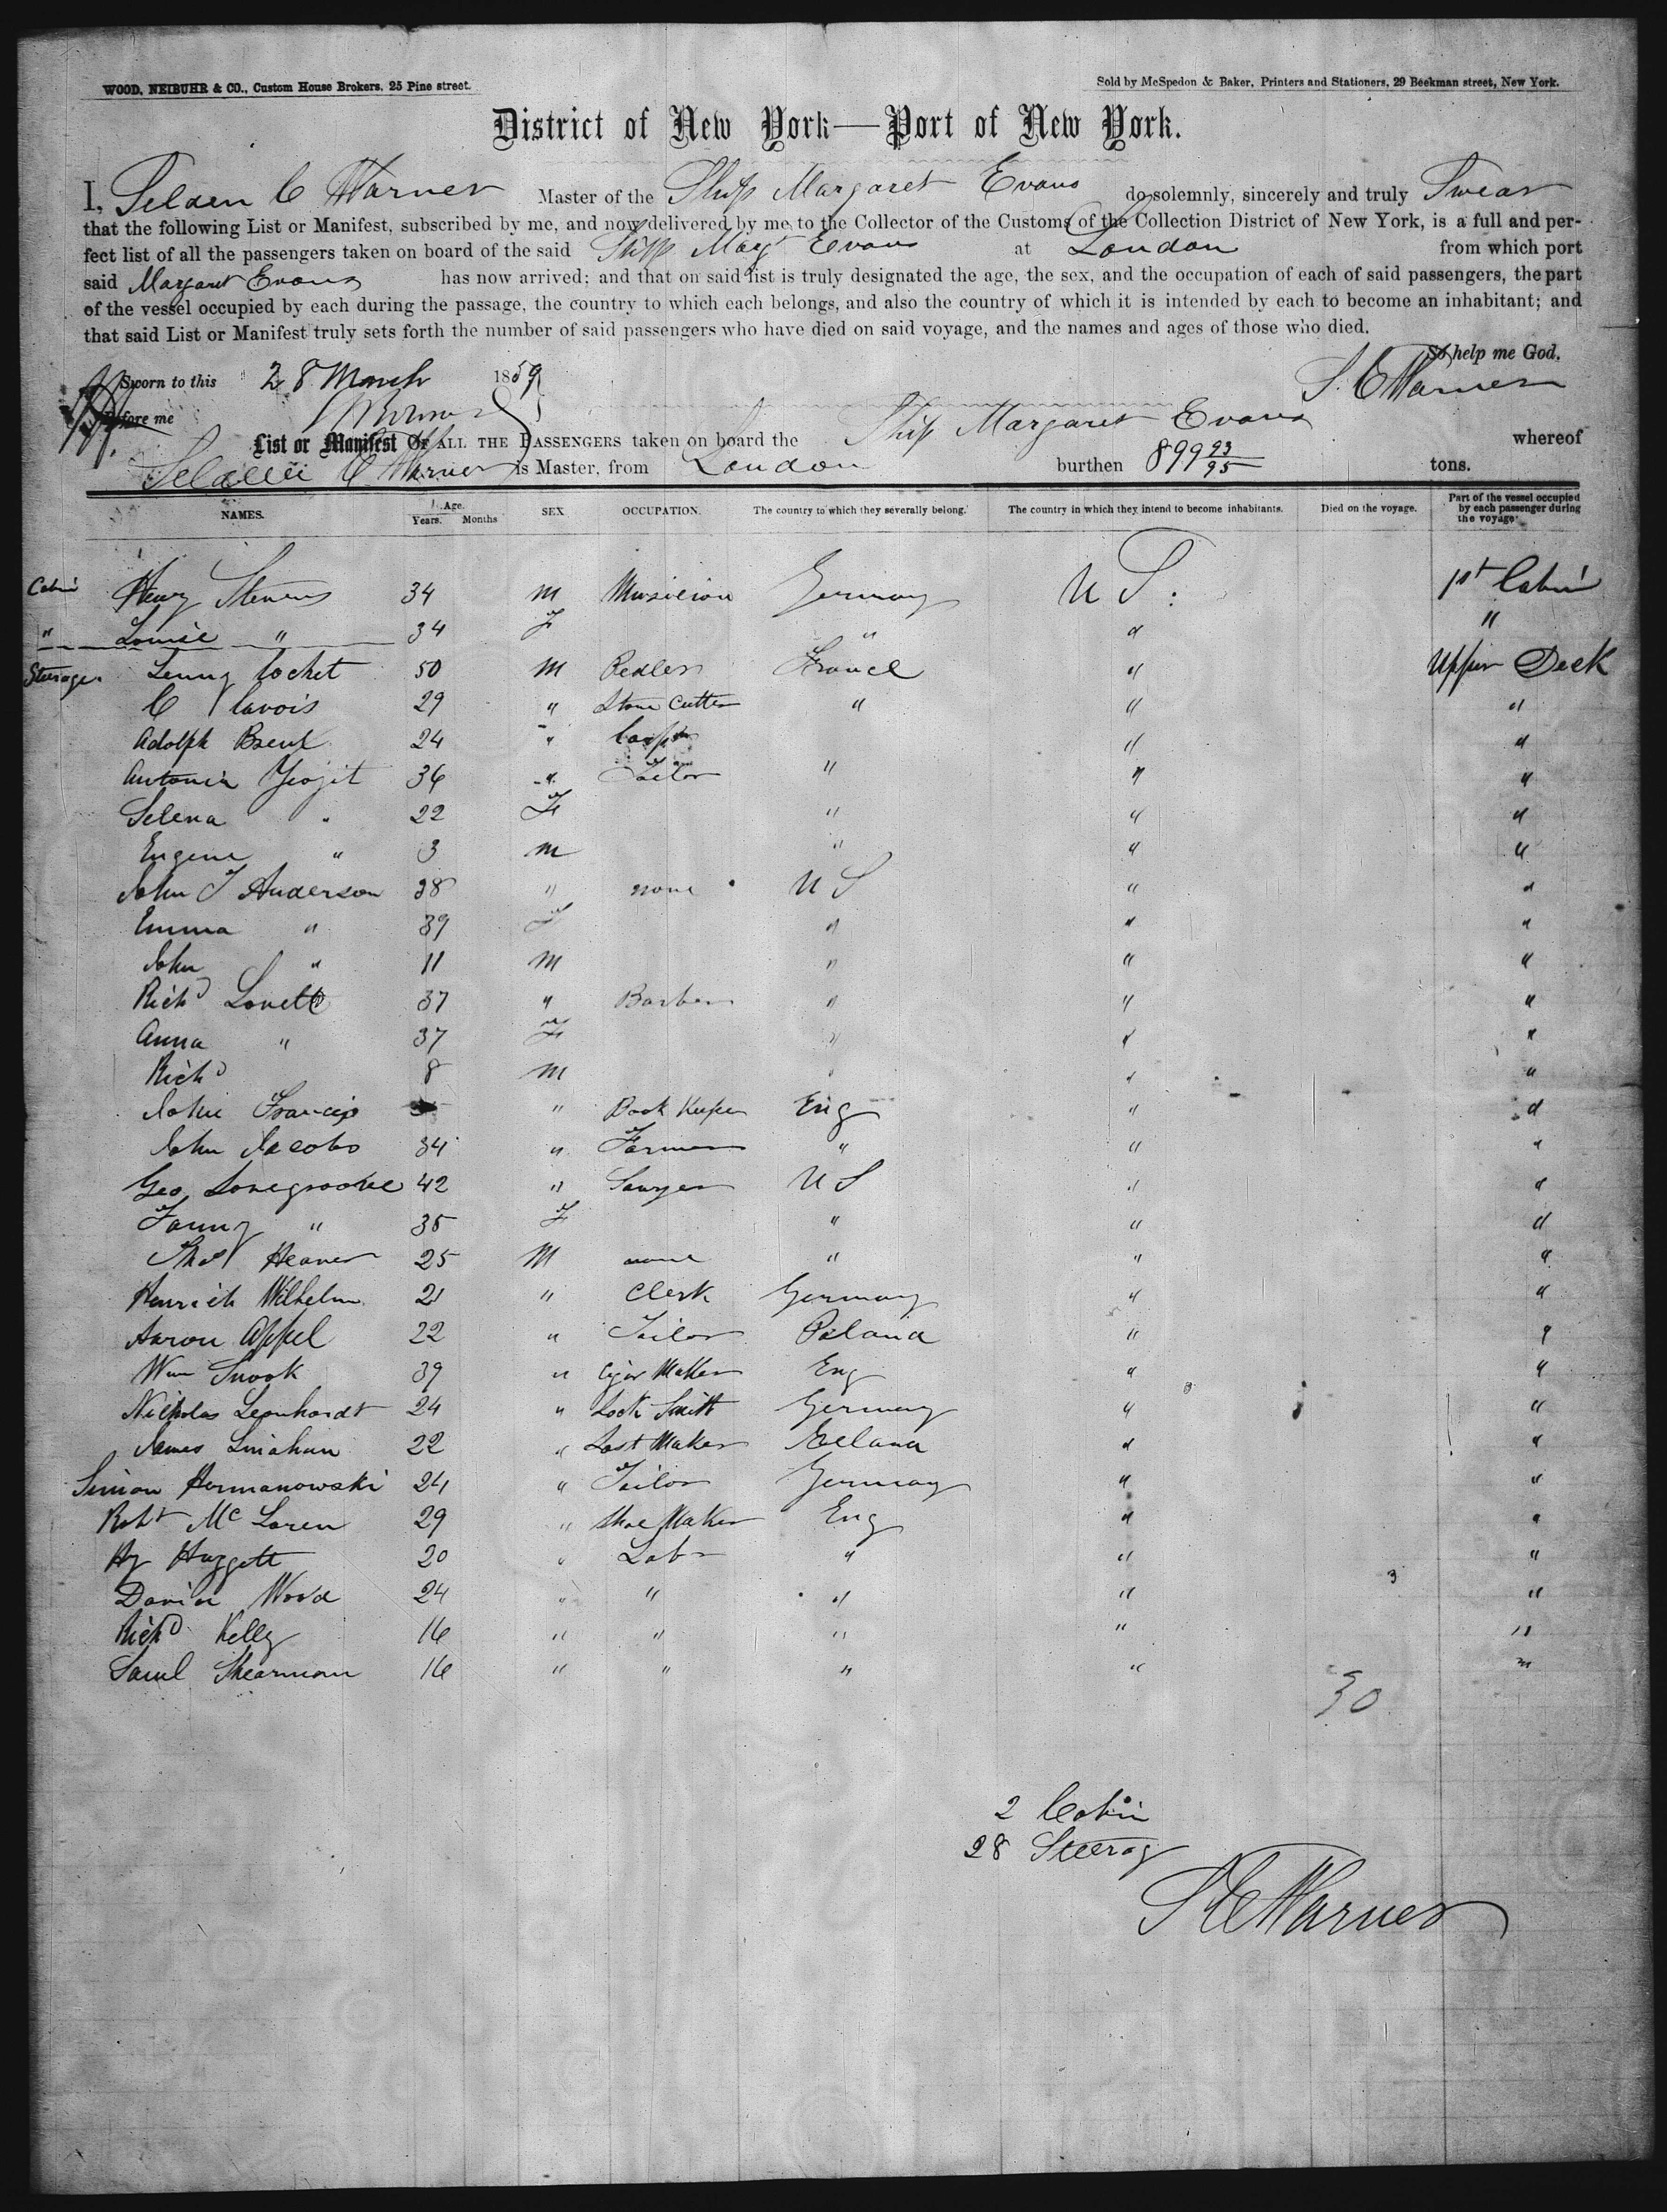 WOOD, NEIBUHR & CO., Custom House Brokers, 25 Pine street.
Sold by McSpedon & Baker, Printers and Stationers, 29 Beekman street, New York.
District of New York—Port of New York.
I, Selden C Warner Master of the Ship Margaret Evans do solemnly, sincerely and truly Swear
that the following List or Manifest, subscribed by me, and now delivered by me to the Collector of the Customs of the Collection District of New York, is a full and per-
fect list of all the passengers taken on board of the said Ship Margt Evans at London from which port
said Margaret Evans has now arrived; and that on said list is truly designated the age, the sex, and the occupation of each of said passengers, the part
of the vessel occupied by each during the passage, the country to which each belongs, and also the country of which it is intended by each to become an inhabitant; and
that said List or Manifest truly sets forth the number of said passengers who have died on said voyage, and the names and ages of those who died.
So help me God,
Sworn to this 28 March 1859
S. C Warner
Before me
List or Manifest OF ALL THE PASSENGERS taken on board the Ship Margaret Evans whereof
Selden C Warner is Master, from London burthen 899 93/95 tons.
NAMES. Age. Years. Months SEX OCCUPATION. The country to which they severally belong. The country in which they intend to become inhabitants. Died on the voyage. Part of the vessel occupied by each passenger during the voyage
Cabin Henry Stevens 34 M Musician Germany U S. 1st Cabin
" Louise " 34 F " " "
Steerage Lenny Cochet 50 M Pedler France " Upper Deck
C Clavois 29 " Stone Cutter " " "
Adolph 24 " " "
Antonia 36 " Tailor " " "
Selena " 22 F " " "
Eugene " 3 M " " "
John T Anderson 38 " none U S " "
Emma " 39 F " " "
John " 11 M " " "
Richd Lovett 37 " Barber " " "
Anna " 37 F " " "
Richd 8 M " " "
John Francis " Book Keeper Eng " "
John Jacobs 34 " Farmer " " "
Geo Lovegroove 42 " Sawyer U S " "
Fanny " 35 F " " "
Thos Heaver 25 M none " " "
Henrich Wilhelm 21 " Clerk Germany " "
Aaron Appel 22 " Tailor Poland " "
Wm Snook 39 " Cigar Maker Eng " "
Nicholas Leonhardt 24 " Lock Smith Germany " "
James Linahan 22 " Last Maker " "
Simon Hermanowski 24 " Tailor Germany " "
Robt Mc Loren 29 " Shoe Maker Eng " "
Hy Huggett 20 " Labr " " "
David Wood 24 " " " " "
Richd Kelly 16 " " " " "
Saml Shearman 16 " " " " "
30
2 Cabin
28 Steerag
S C Warner